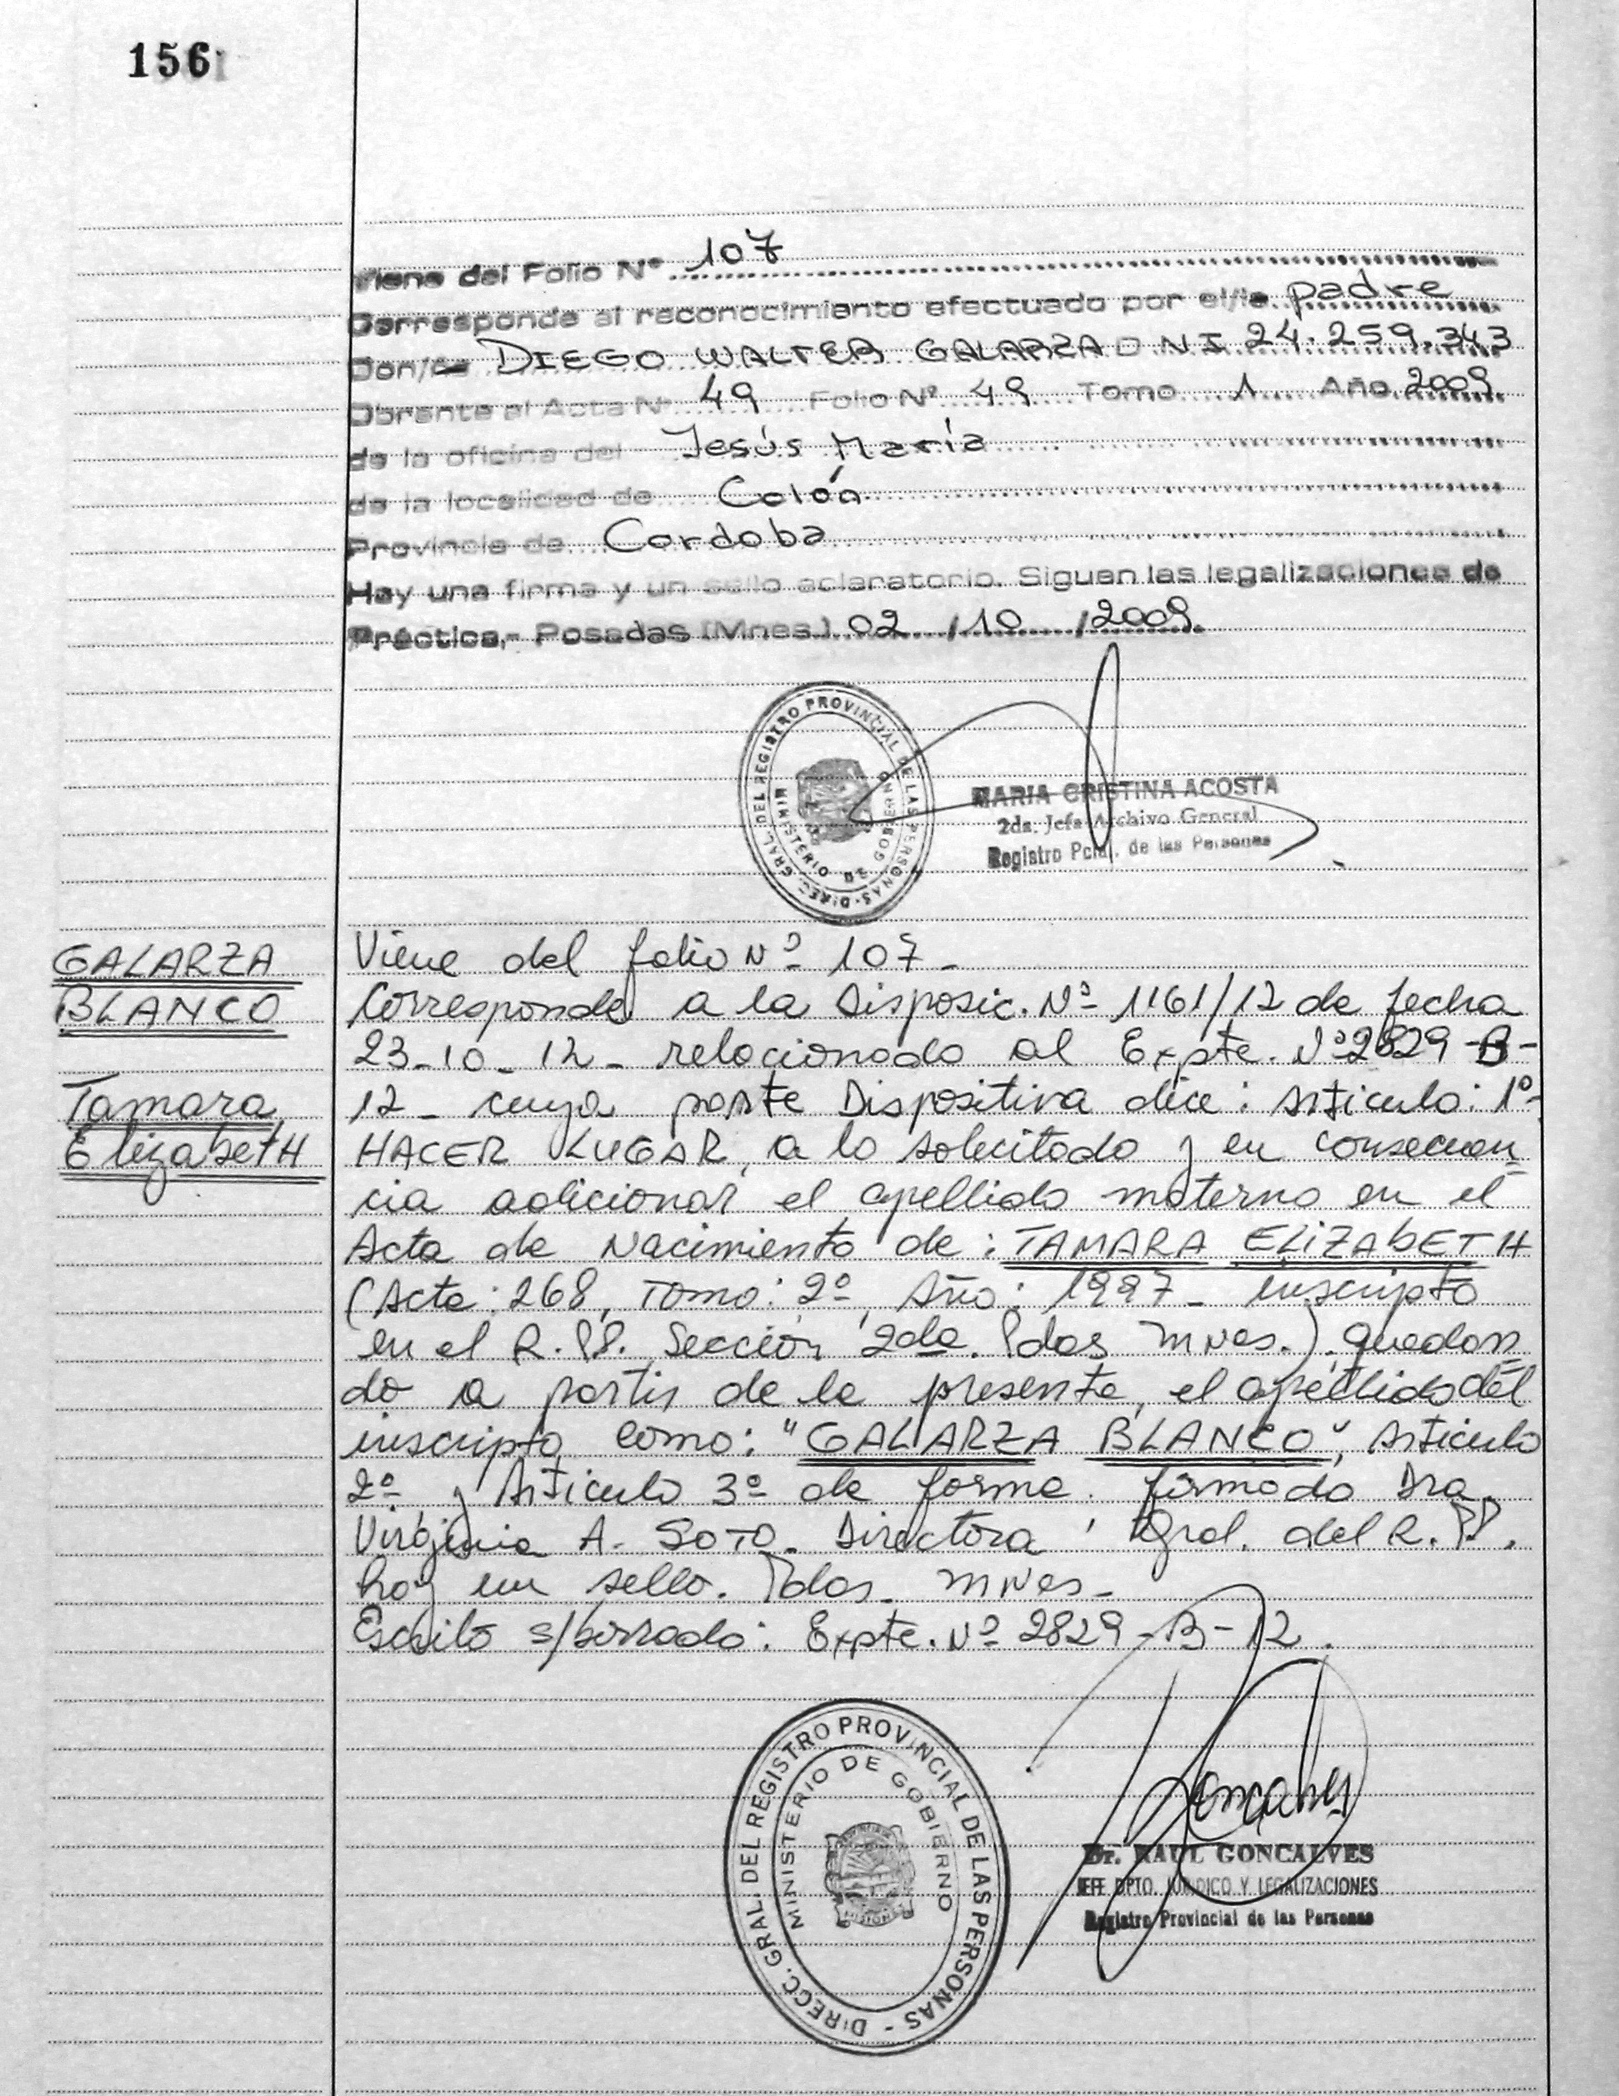 156
Viene del Folio Nº 107
Corresponde al reconocimiento efectuado por el/la padre
Don/ña DIEGO WALTER GALARZA DNI 24.259.343
Obrante al Acta Nº 49 Folio Nº 49 Tomo 1 Año 2009
de la oficina del Jesús María
de la localidad de Colón
Provincia de Cordoba
Hay una firma y un sello aclaratorio. Siguen las legalizaciones de
Práctica.- Posadas (Mnes.) 02 / 10 / 2009.
DIREC. GRAL. DEL REGISTRO PROVINCIAL DE LAS PERSONAS
MINISTERIO DE GOBIERNO
MARIA CRISTINA ACOSTA
2da. Jefa Archivo General
Registro Pcial. de las Personas
GALARZA
BLANCO
Tamara
ElizabetH
Viene del folio Nº 107-
Corresponde a la Disposic. Nº 1161/12 de fecha
23-10-12- relacionado al Expte. Nº 2829-B-
12- cuya parte Dispositiva dice: Articulo: 1º-
HACER LUGAR, a lo solicitado y en consecuen
cia adicionar el apellido materno en el
Acta de Nacimiento de: TAMARA ELIZAbETH
(Acta: 268, Tomo: 2º, Año: 1997- inscripto
en el R.PP. Sección 2da. Pdas Mnes.). quedan
do a partir de la presente, el apellido del
inscripto como: "GALARZA BLANCO", Articulo
2º y Articulo 3º de forma. firmado Dra.
Virginia A. SOTO. Directora Gral. del R.PP.
hay un sello. Pdas. Mnes-
Escrito s/borrado: Expte. Nº 2829-B-12.
DIRECC. GRAL. DEL REGISTRO PROVINCIAL DE LAS PERSONAS
MINISTERIO DE GOBIERNO
Goncalves
Dr. RAUL GONCALVES
JEFE DPTO. JURIDICO Y LEGALIZACIONES
Registro Provincial de las Personas